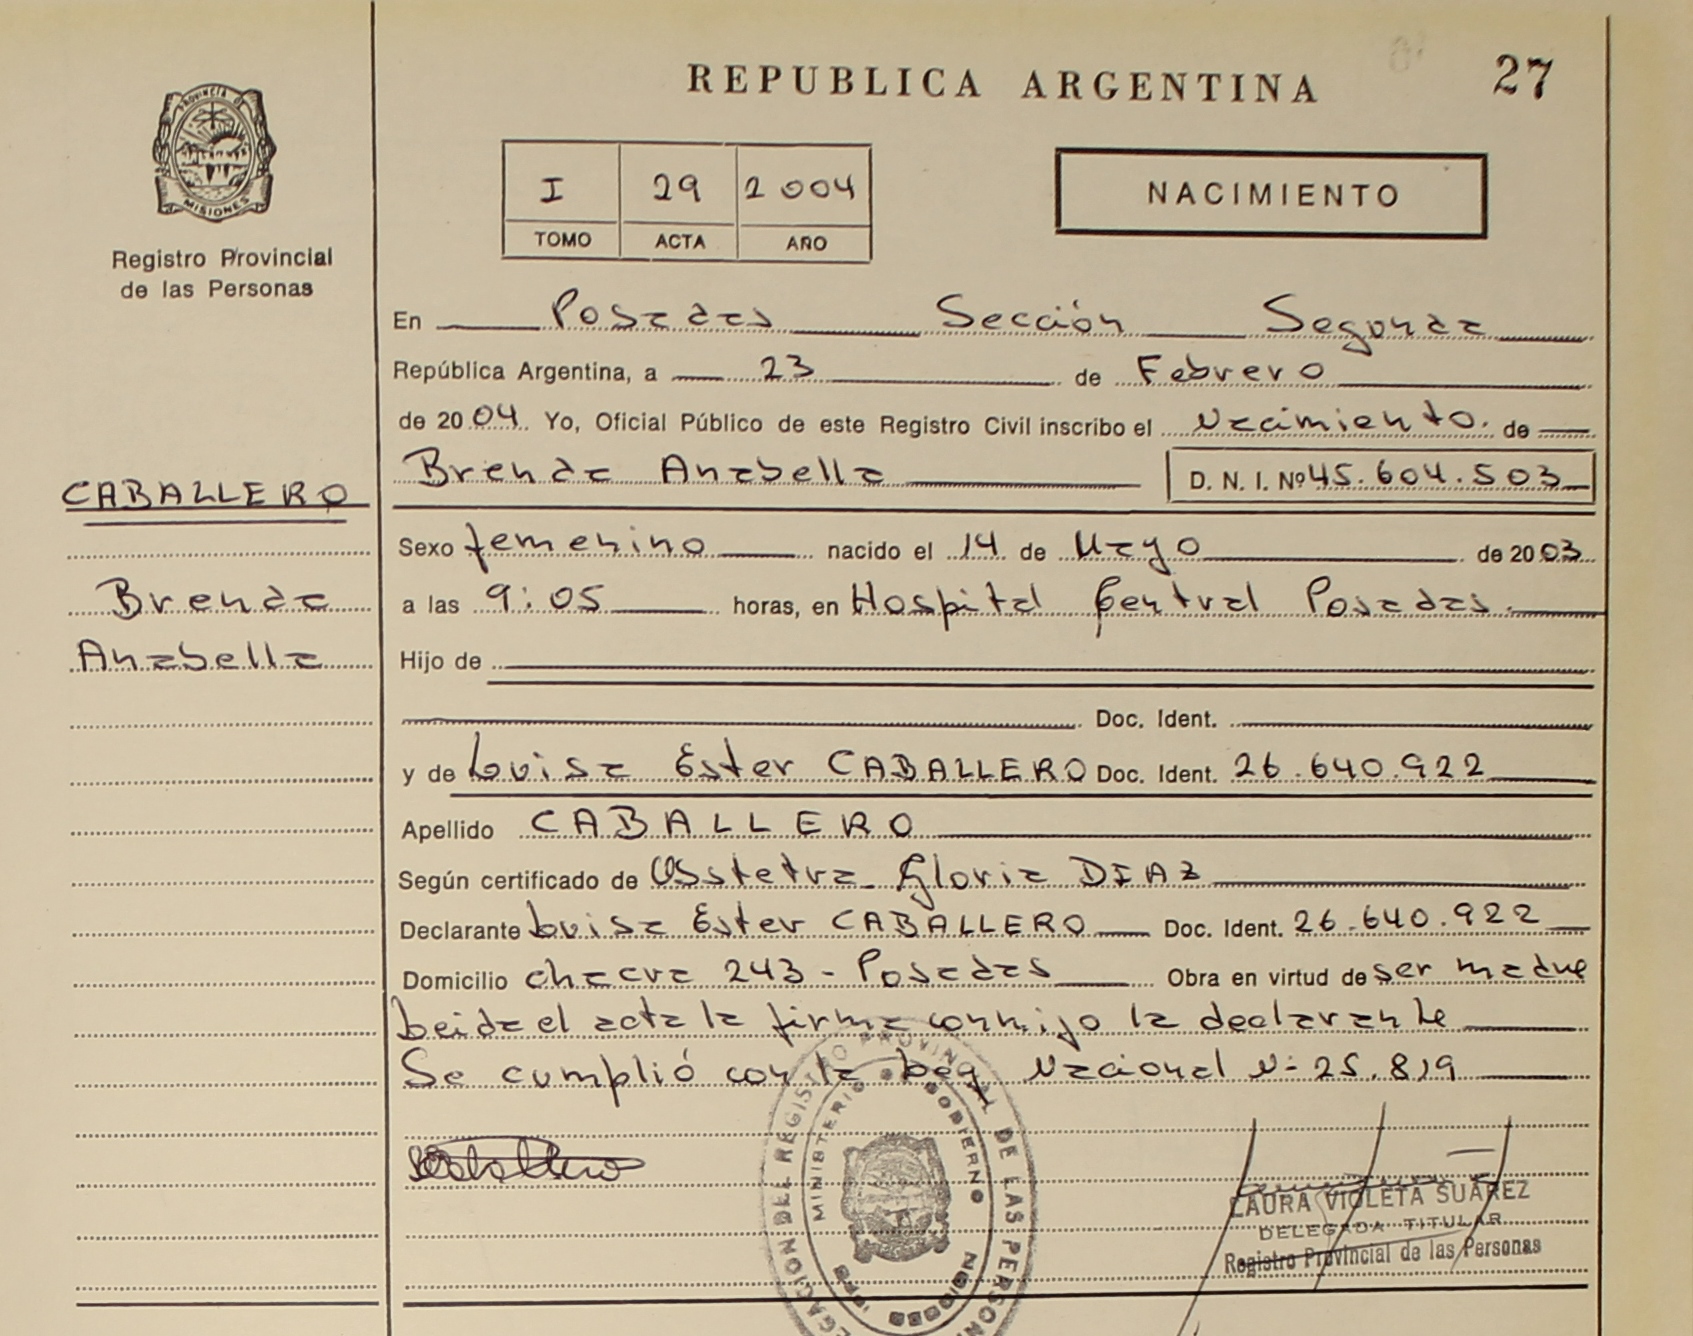 REPUBLICA ARGENTINA 27
PROVINCIA DE
MISIONES
Registro Provincial
de las Personas
I 29 2004
TOMO ACTA AÑO
NACIMIENTO
En Posadas Sección Segunda
República Argentina, a 23 de Febrero
de 2004 Yo, Oficial Público de este Registro Civil inscribo el Nacimiento. de
CABALLERO
Brenda Anabella D. N. I. Nº 45.604.503
Sexo femenino nacido el 14 de Mayo de 2003
Brenda
a las 9:05 horas, en Hospital Central Posadas.
Anabella
Hijo de
Doc. Ident.
y de Luisa Ester CABALLERO Doc. Ident. 26.640.922
Apellido CABALLERO
Según certificado de Obstetra Gloria DIAZ
Declarante Luisa Ester CABALLERO Doc. Ident. 26.640.922
Domicilio chacra 243 - Posadas Obra en virtud de ser madre
Leida el acta la firma conmigo la declarante
Se cumplió con la Ley Nacional Nº 25.819
DEL REGISTRO PROVINCIAL DE LAS
MINISTERIO GOBIERNO
MISIONES
LAURA VIOLETA SUAREZ
DELEGADA TITULAR
Registro Provincial de las Personas